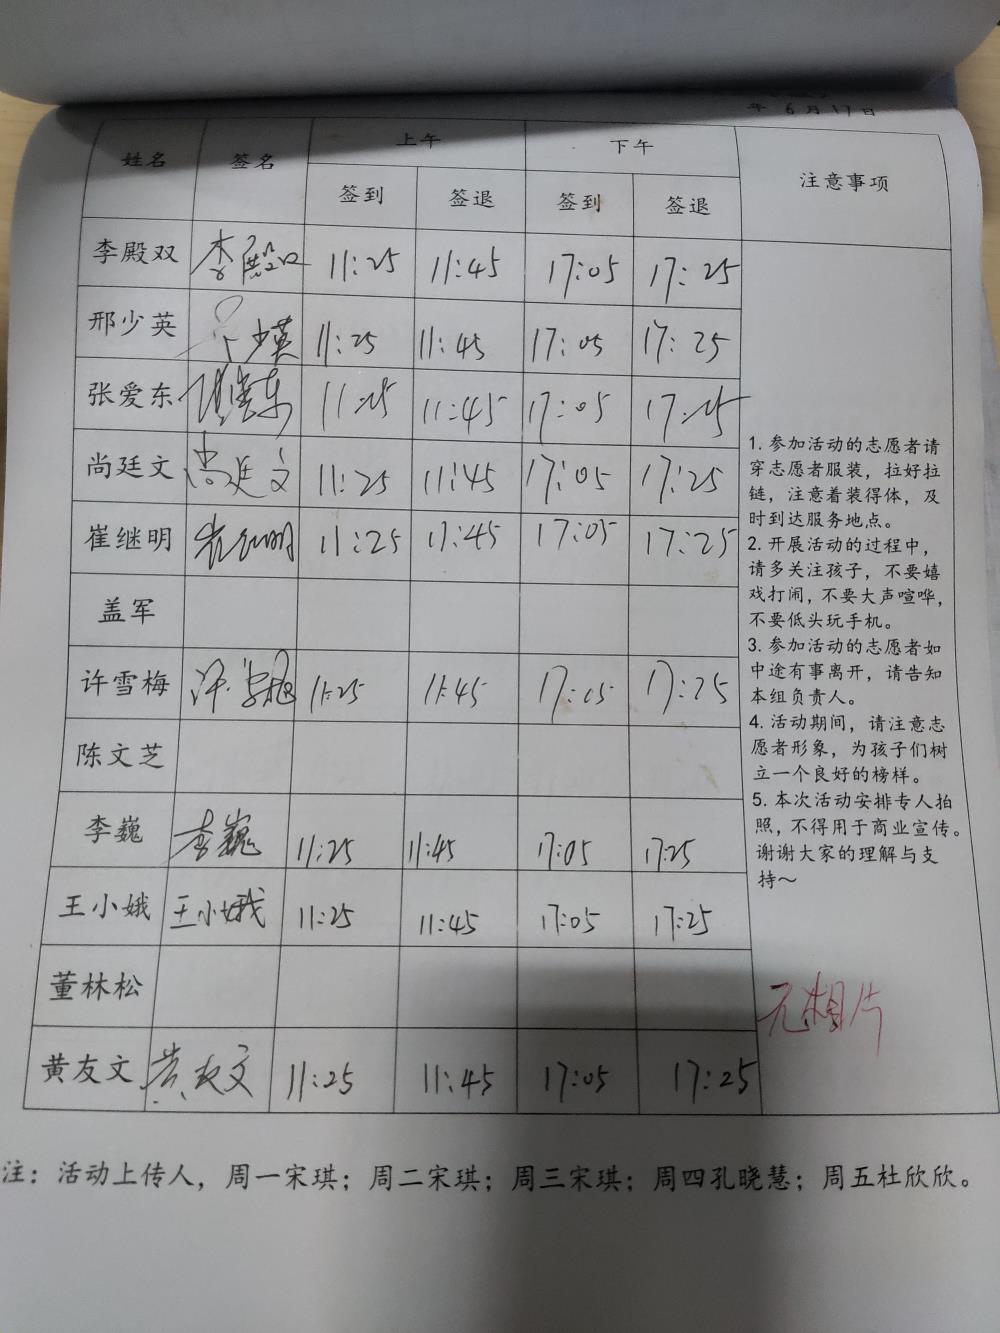 年 6月17日
姓名 签名 上午 下午 注意事项
签到 签退 签到 签退
李殿双 李殿双 11:25 11:45 17:05 17:25
邢少英 少英 11:25 11:45 17:05 17:25
张爱东 张爱东 11:25 11:45 17:05 17:25
尚廷文 尚廷文 11:25 11:45 17:05 17:25
崔继明 崔继明 11:25 11:45 17:05 17:25
盖军
许雪梅 许雪梅 11:25 11:45 17:05 17:25
陈文芝
李巍 李巍 11:25 11:45 17:05 17:25
王小娥 王小娥 11:25 11:45 17:05 17:25
董林松
黄友文 黄友文 11:25 11:45 17:05 17:25
1. 参加活动的志愿者请
穿志愿者服装，拉好拉
链，注意着装得体，及
时到达服务地点。
2. 开展活动的过程中，
请多关注孩子，不要嬉
戏打闹，不要大声喧哗，
不要低头玩手机。
3. 参加活动的志愿者如
中途有事离开，请告知
本组负责人。
4. 活动期间，请注意志
愿者形象，为孩子们树
立一个良好的榜样。
5. 本次活动安排专人拍
照，不得用于商业宣传。
谢谢大家的理解与支
持～
无相片
注：活动上传人，周一宋琪；周二宋琪；周三宋琪；周四孔晓慧；周五杜欣欣。